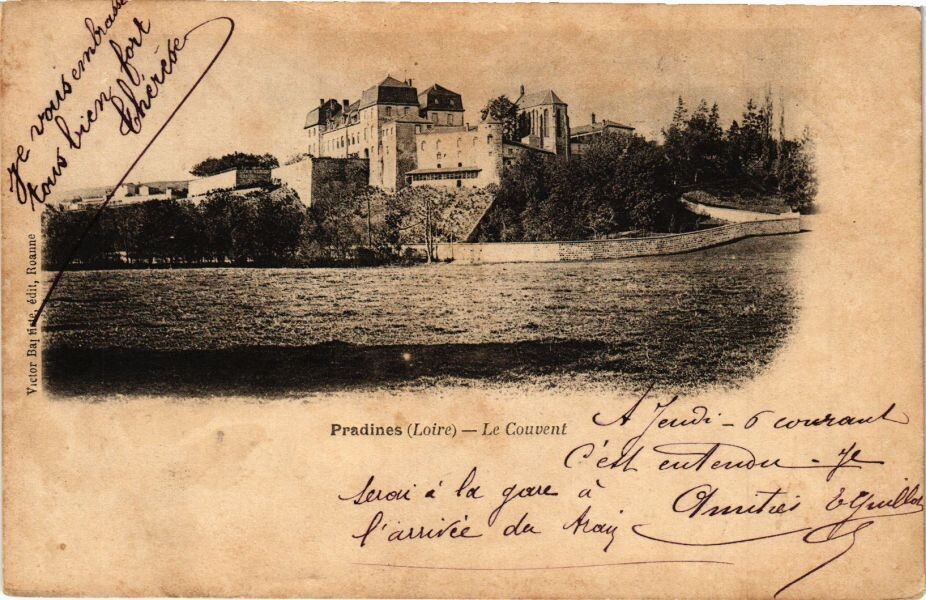 Je vous embrasse
tous bien fort
Thérèse
Victor Baptiste, édit, Roanne
Pradines (Loire) — Le Couvent
A Jeudi - 6 courant
C'est entendu - Je
serai à la gare à
l'arrivée du train
Amitiés